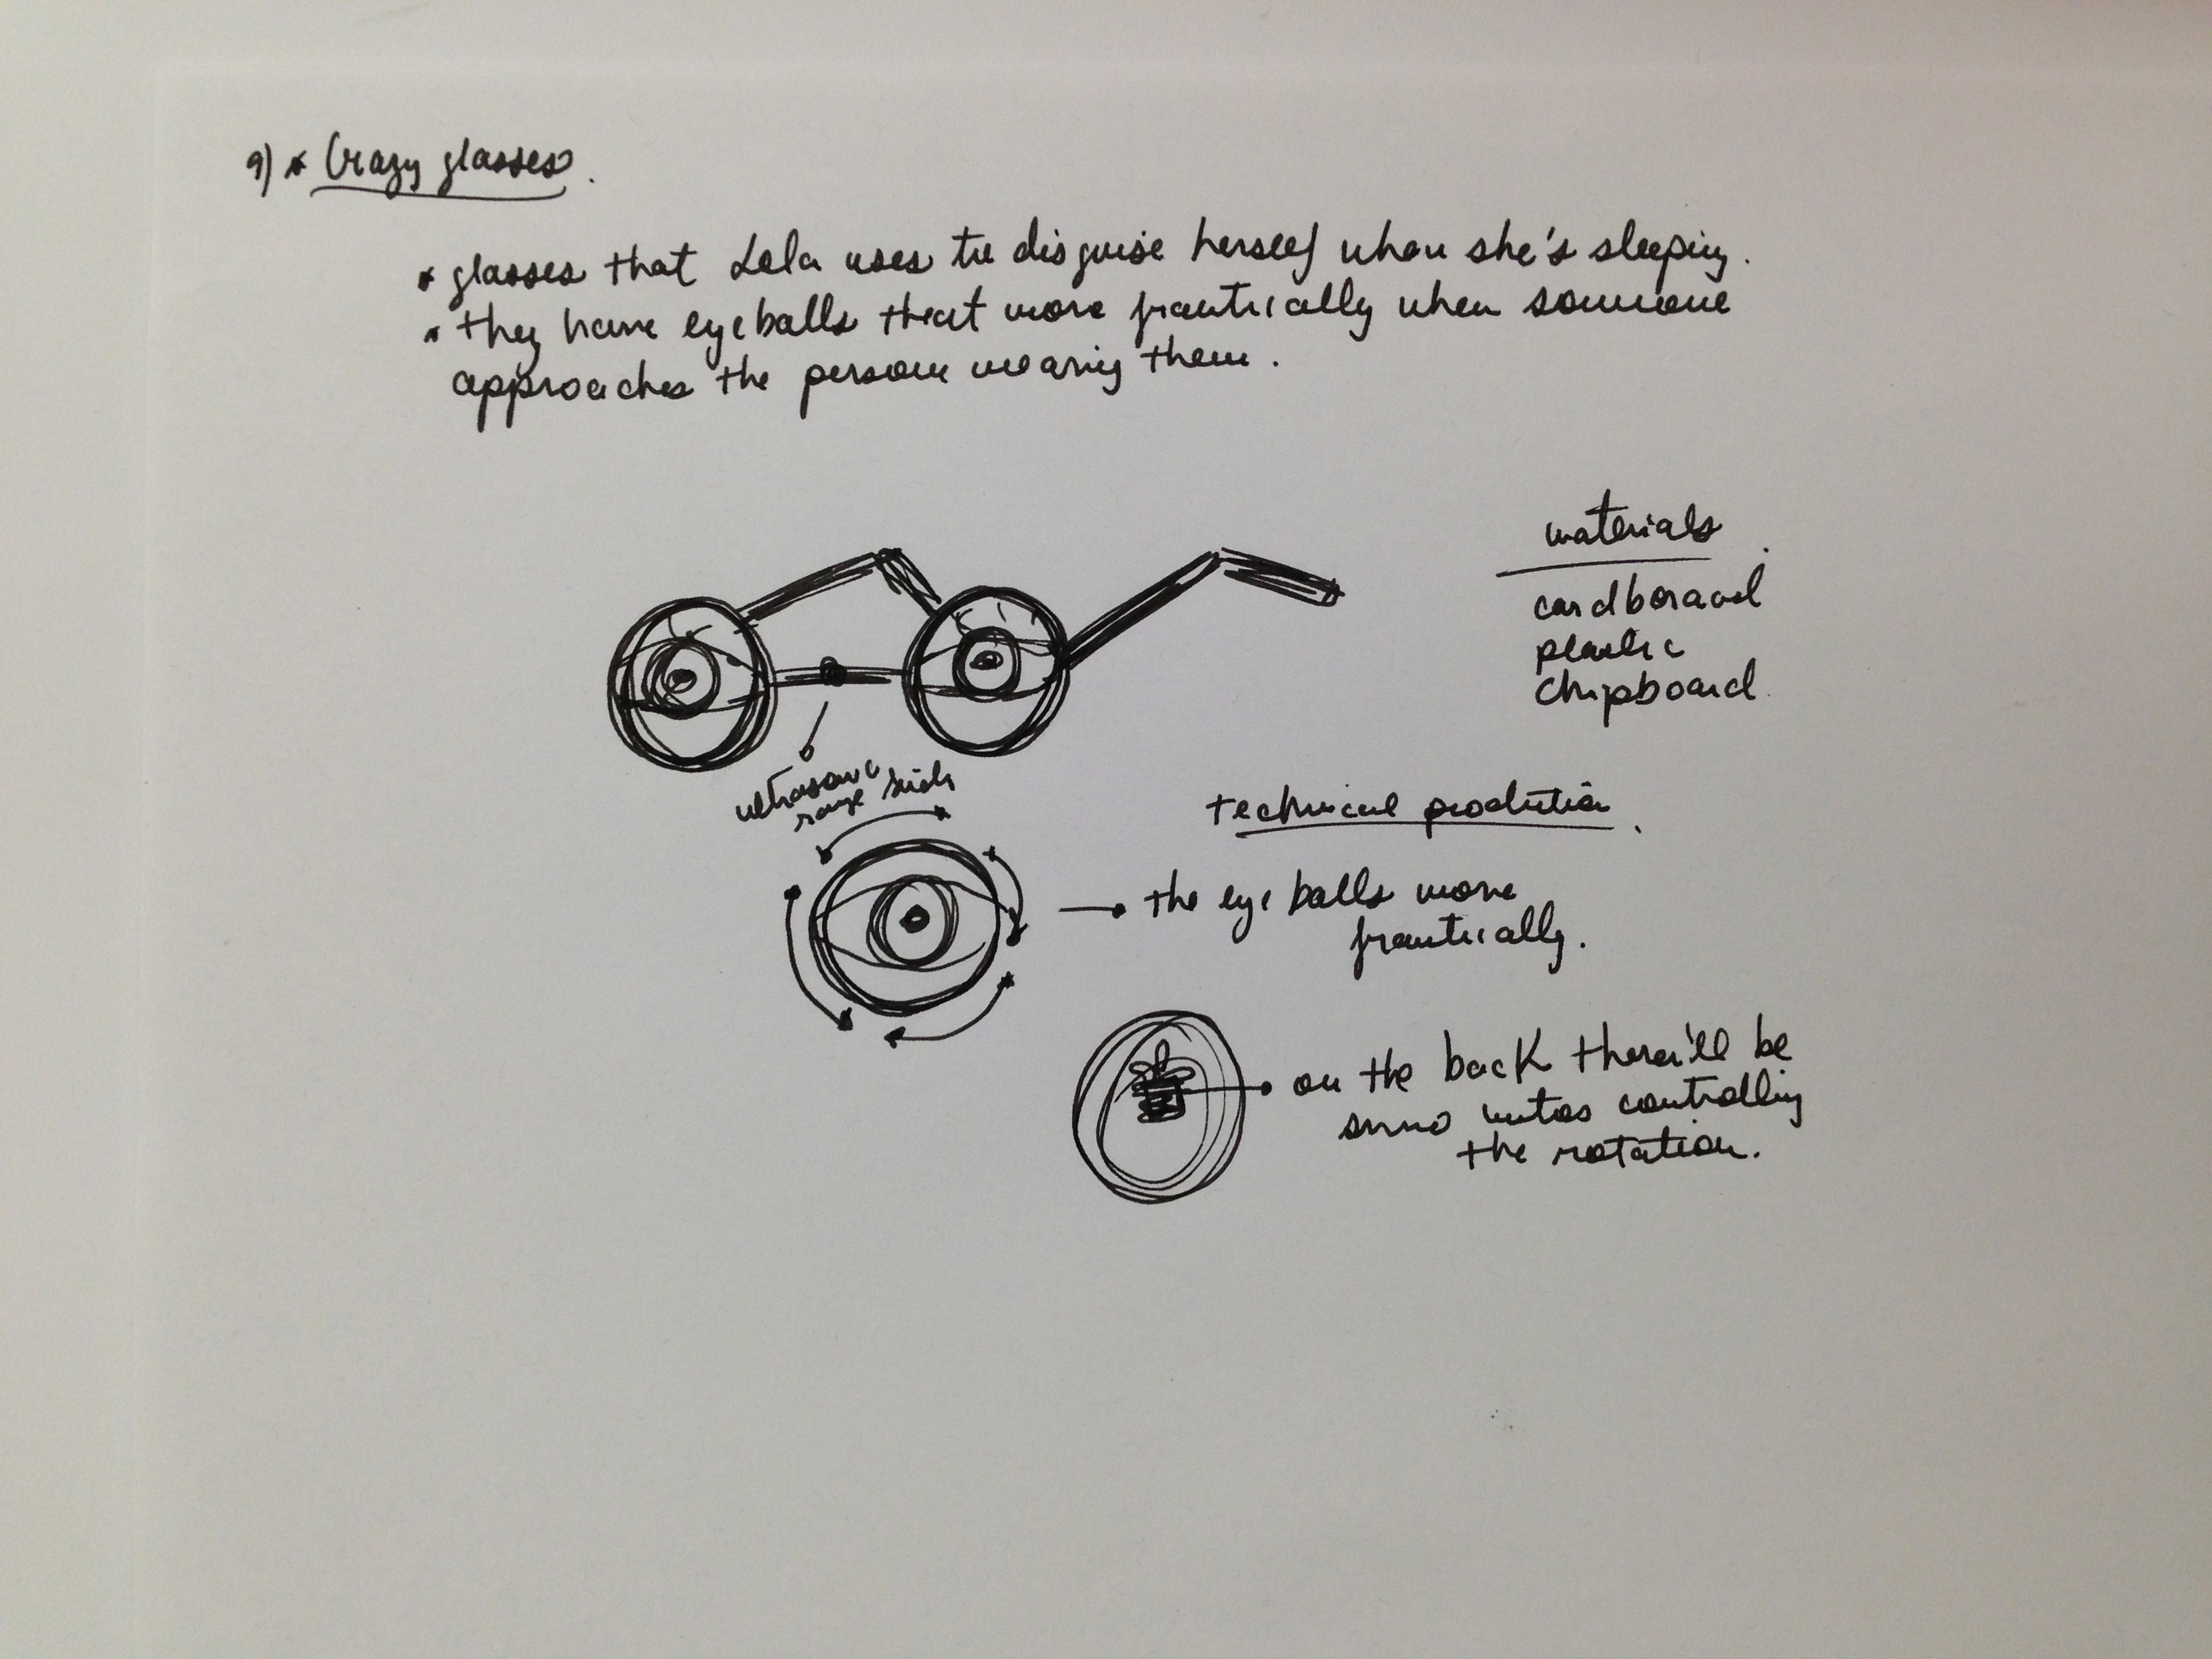 9) * Crazy glasses.
* glasses that Lola uses to disguise herself when she's sleeping.
* they have eyeballs that move frantically when someone
approaches the person wearing them.
materials.
cardboraod
plastic
chipboard.
ultrasonic
range
technical prodution.
the eye balls move
frantically.
on the back there'll be
servo motos controlling
the rotation.